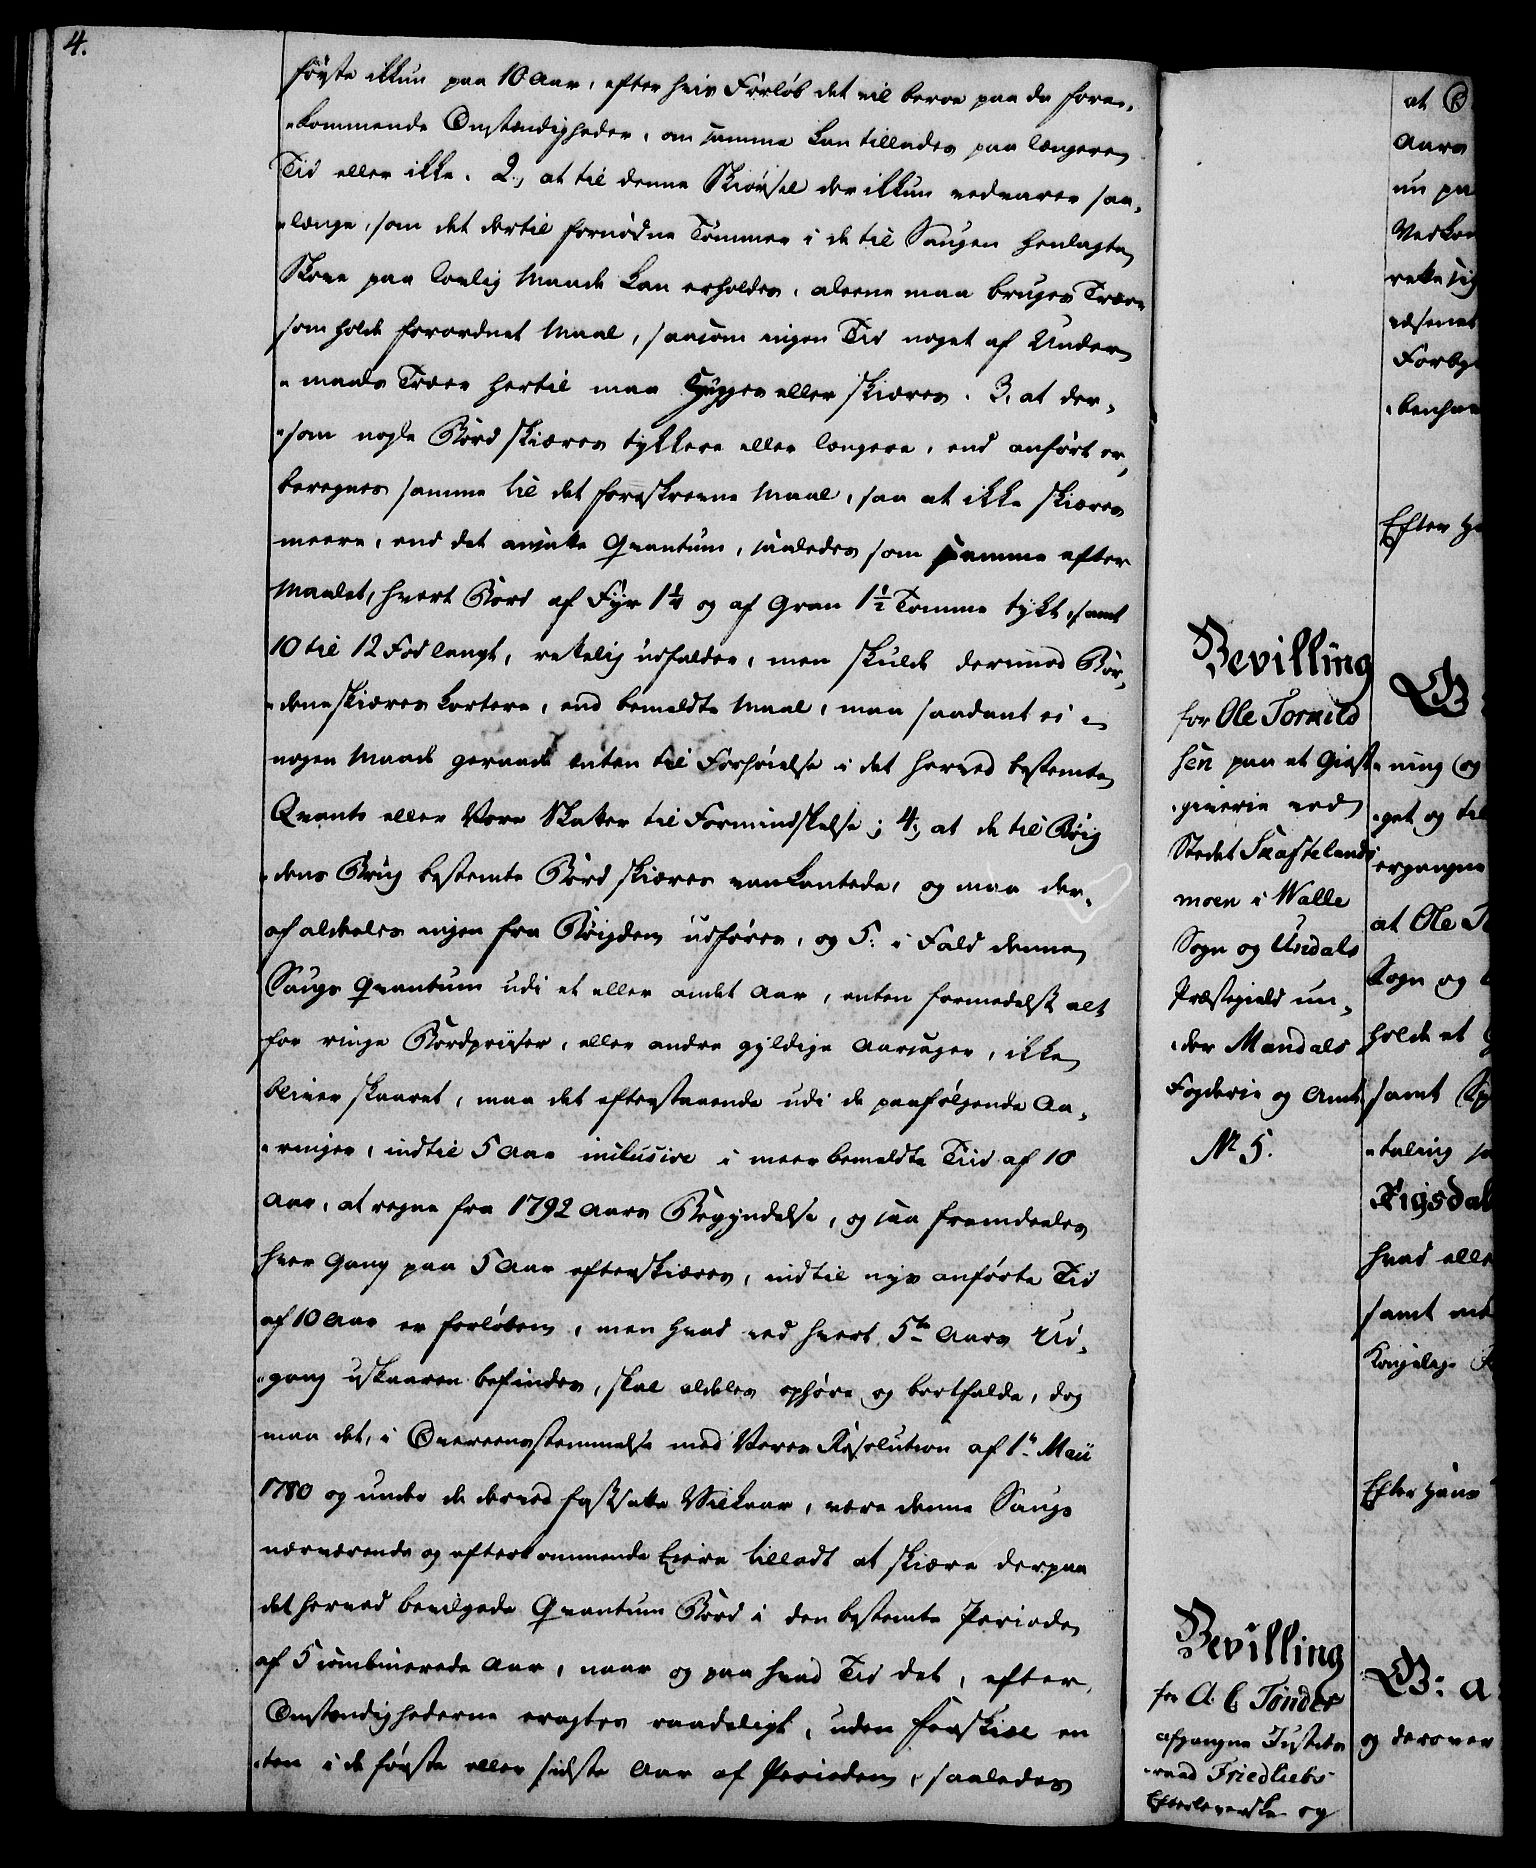 4.
første ikkun paa 10 Aar, efter hvis Forløb det vil beroe paa de fore-
-kommende Omstændigheder, om samme kan tillades paa længere
Tid eller ikke. 2, at til denne Skiørsel der ikkun vedvarer saa-
-længe, som det dertil fornødne Tømmer i de til Saugen henlagte
Skove paa lovlig Maade kan erholdes, alleene maa bruges Træer
som holde forordnet Maal, saasom ingen Tid noget af Under
-maals Træer hertil maa hugges eller skiæres. 3, at der-
-som nogle Bord skiæres tykkere eller længere, end anført er,
beregnes samme til det foreskrevne Maal, saa at ikke skiæres
meere, end det ansatte Qvantum, saaledes som samme efter
Maalet, hvert Bord af Fyr 1¼ og af Gran 1½ Tomme tykt, samt
10 til 12 Fod langt, rettelig udfalder, men skulde derimod Bor-
-dene skiæres kortere, end bemeldte Maal, maa saadant ei i
nogen Maade geraade enten til Forhøielse i det herved bestemte
Qvanto eller Vore Skatter til Formindskelse; 4, at de til Bøig
-dens Brug bestemte Bord skiæres vankantede, og maa der-
af aldeeles ingen fra Bøigden udføres, og 5: i Fald denne
Saugs Qvantum udi et eller andet Aar, enten formedelst alt
for ringe Bordpriiser, eller andre gyldige Aarsager, ikke
bliver skaaret, maa det efterstaaende udi de paafølgende Aa-
-ringer, indtil 5 Aar inclusive i meerbemeldte Tiid af 10
Aar, at regne fra 1792 Aars Begyndelse, og saa fremdeeles
hver Gang paa 5 Aar efterskiæres, indtil nys anførte Tid
af 10 Aar er forløben, men hvad ved hvert 5te Aars Ud-
-gang uskaaren befindes, skal aldeles ophøre og bortfalde, dog
maa det, i Overeensstemmelse med Vores Resolution af 1te Maii
1780 og under de derved fastsatte Vilkaar, være denne Saugs
nærværende og efterkommende Eiere tilladt at skiære derpaa
det herved bevilgede Qvantum Bord i den bestemte Periode
af 5 combinerede Aar, naar og paa hvad Tid det, efter
Omstændighederne eragtes raadeligt, uden Forskiæl en
-ten i de første eller sidste Aar af Perioden, saaledes
Bevilling
for Ole Tormod
sen paa et Giæst
-giverie ved
Stedet
moen i Walle
Sogn og Undals
Præstegield un-
-der Mandals
Fogderie og Amt.
No 5.
Bevilling
for A. C. Tønder
afgangne Justits
-raad Friedliebs
Efterleverske og
at
Aars
nu pa
Vedkom
rette sig
Forby
Efter H
G
-ning (og
-get og til
ergangne
at Ole To
Sogn og
holde et G
samt Sp
-taling
Rigsdal
hvad elle
samt
Kongelige
Efter Hans
G: a
og derover